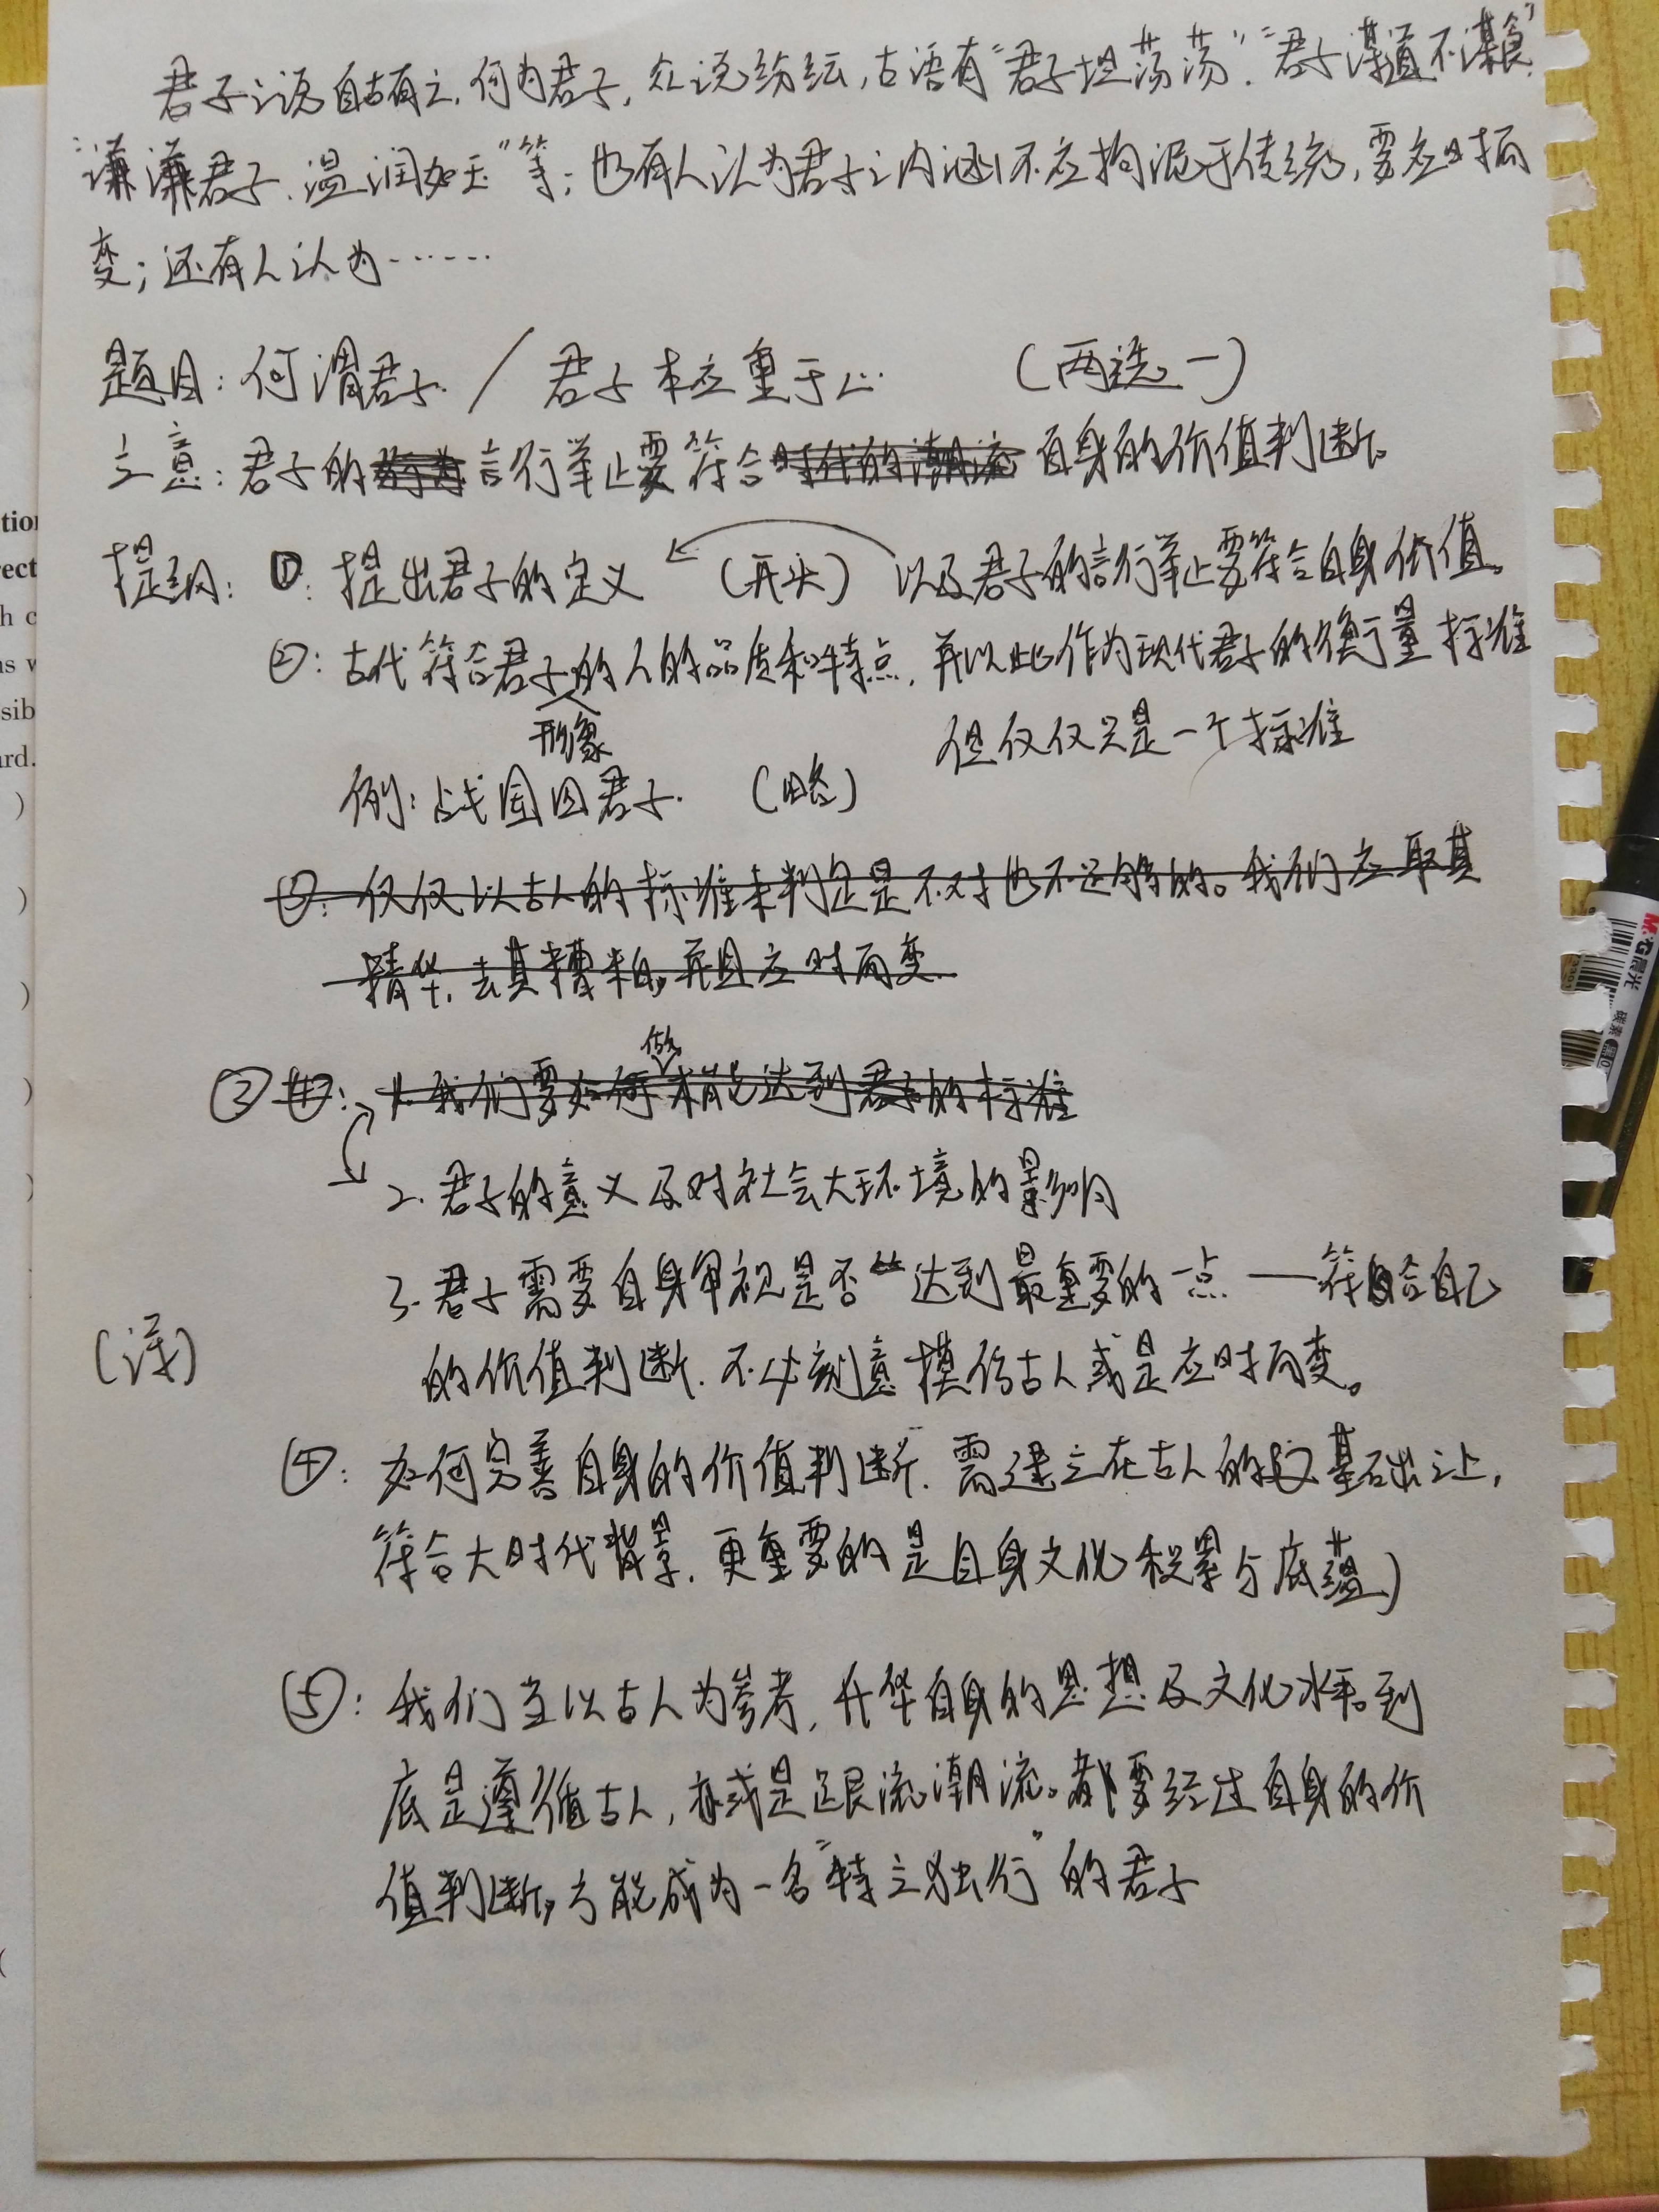 君子之说自古有之,何为君子,众说纷纭,古语有“君子坦荡荡”.“君子谋道不谋食”
“谦谦君子.温润如玉”等;也有人认为君子之内涵不应拘泥于传统,要应时而
变;还有人认为……
题目:何谓君子 / 君子本应重于心 (两选一)
立意:君子的言行举止要符合时代的潮流自身的价值判断。
提纲:①:提出君子的定义 (开头) 以及君子的言行举止要符合自身价值。
②:古代符合君子的人的品质和特点,并以此作为现代君子的衡量标准
形象
但仅仅只是一个标准
例:战国四君子. (略)
③:仅仅以古人的标准来判定是不对也不足够的。我们应取其
精华,去其糟粕,并且应时而变.
做
③④:1.我们要如何才能达到君子的标准
2.君子的意义及对社会大环境的影响
3.君子需要自身审视是否达到最重要的一点——符合自己
(详)
的价值判断.不必刻意模仿古人或是应时而变。
④:如何完善自身的价值判断.需建立在古人的基础之上,
符合大时代背景.更重要的是自身文化积累与底蕴)
⑤:我们当以古人为参考,升华自身的思想及文化水平。到
底是遵循古人,亦或是跟流潮流。都要经过自身的价
值判断,方能成为一名“特立独行”的君子
tion
rect
h c
as w
sib
ard.
)
)
)
)
)
M&G晨光